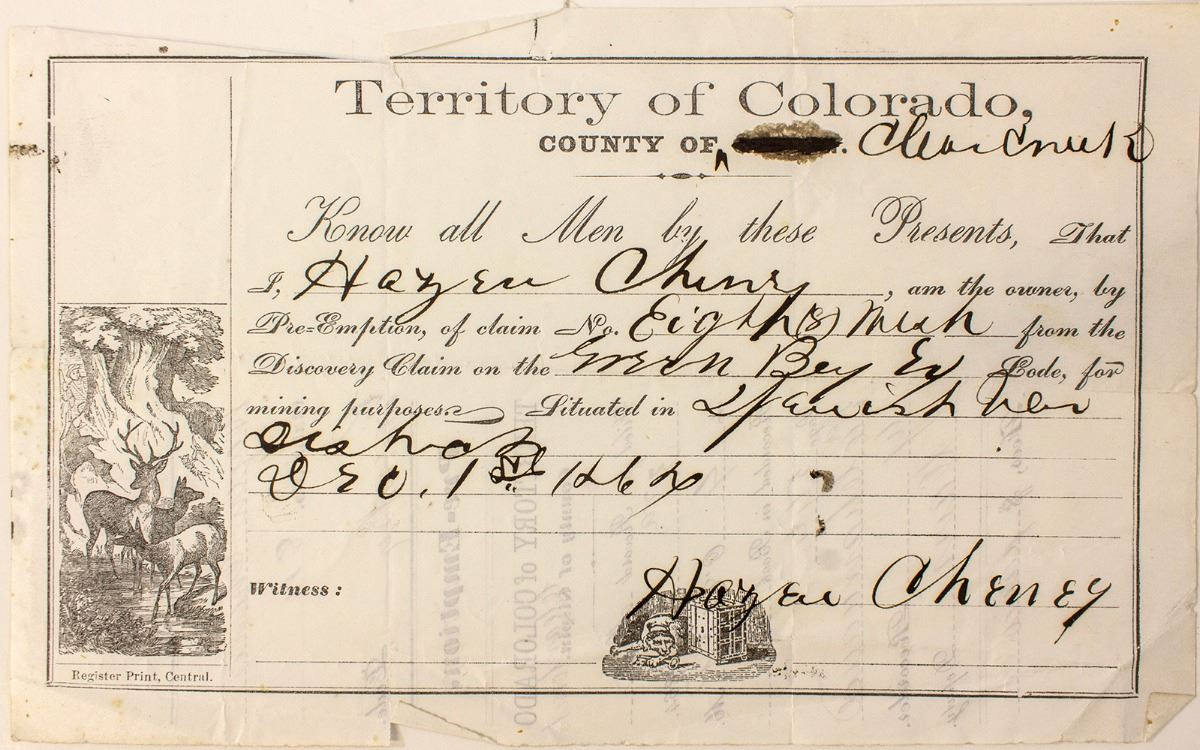 Territory of Colorado,
COUNTY OF Clear Creek
Know all Men by these Presents, That
I, Hazen Cheney, am the owner, by
Pre=Emption, of claim No. Eigth (8) West from the
Discovery Claim on the Green Bey Ex Lode, for
mining purposes Situated in Spanish Bar
District
Dec. 1st 1864
Witness: Hazen Cheney
Register Print, Central.